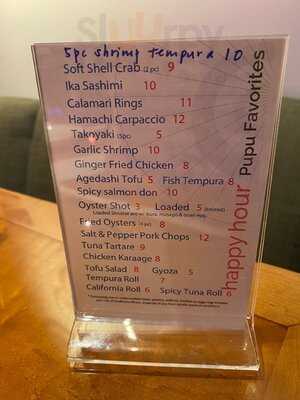 5pc shrimp Tempura 10
Soft Shell Crab (2 pc) 9
Ika Sashimi 10
Calamari Rings 11
Hamachi Carpaccio 12
Takoyaki (5pc) 5
Garlic Shrimp 10
Ginger Fried Chicken 8
Agedashi Tofu 5 Fish Tempura 8
Spicy salmon don - 10
Oyster Shot 3 Loaded 5
Fried Oysters 8
Salt & Pepper Pork Chops 12
Tuna Tartare 9
Chicken Karaage 8
Tofu Salad 8 Gyoza 5
Tempura Roll 7
California Roll 6 Spicy Tuna Roll 6
happy hour Pupu Favorites